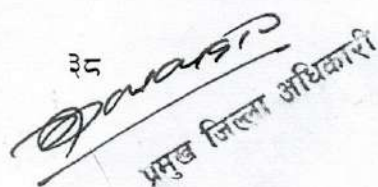 ३८
प्रमुख जिल्ला अधिकारी